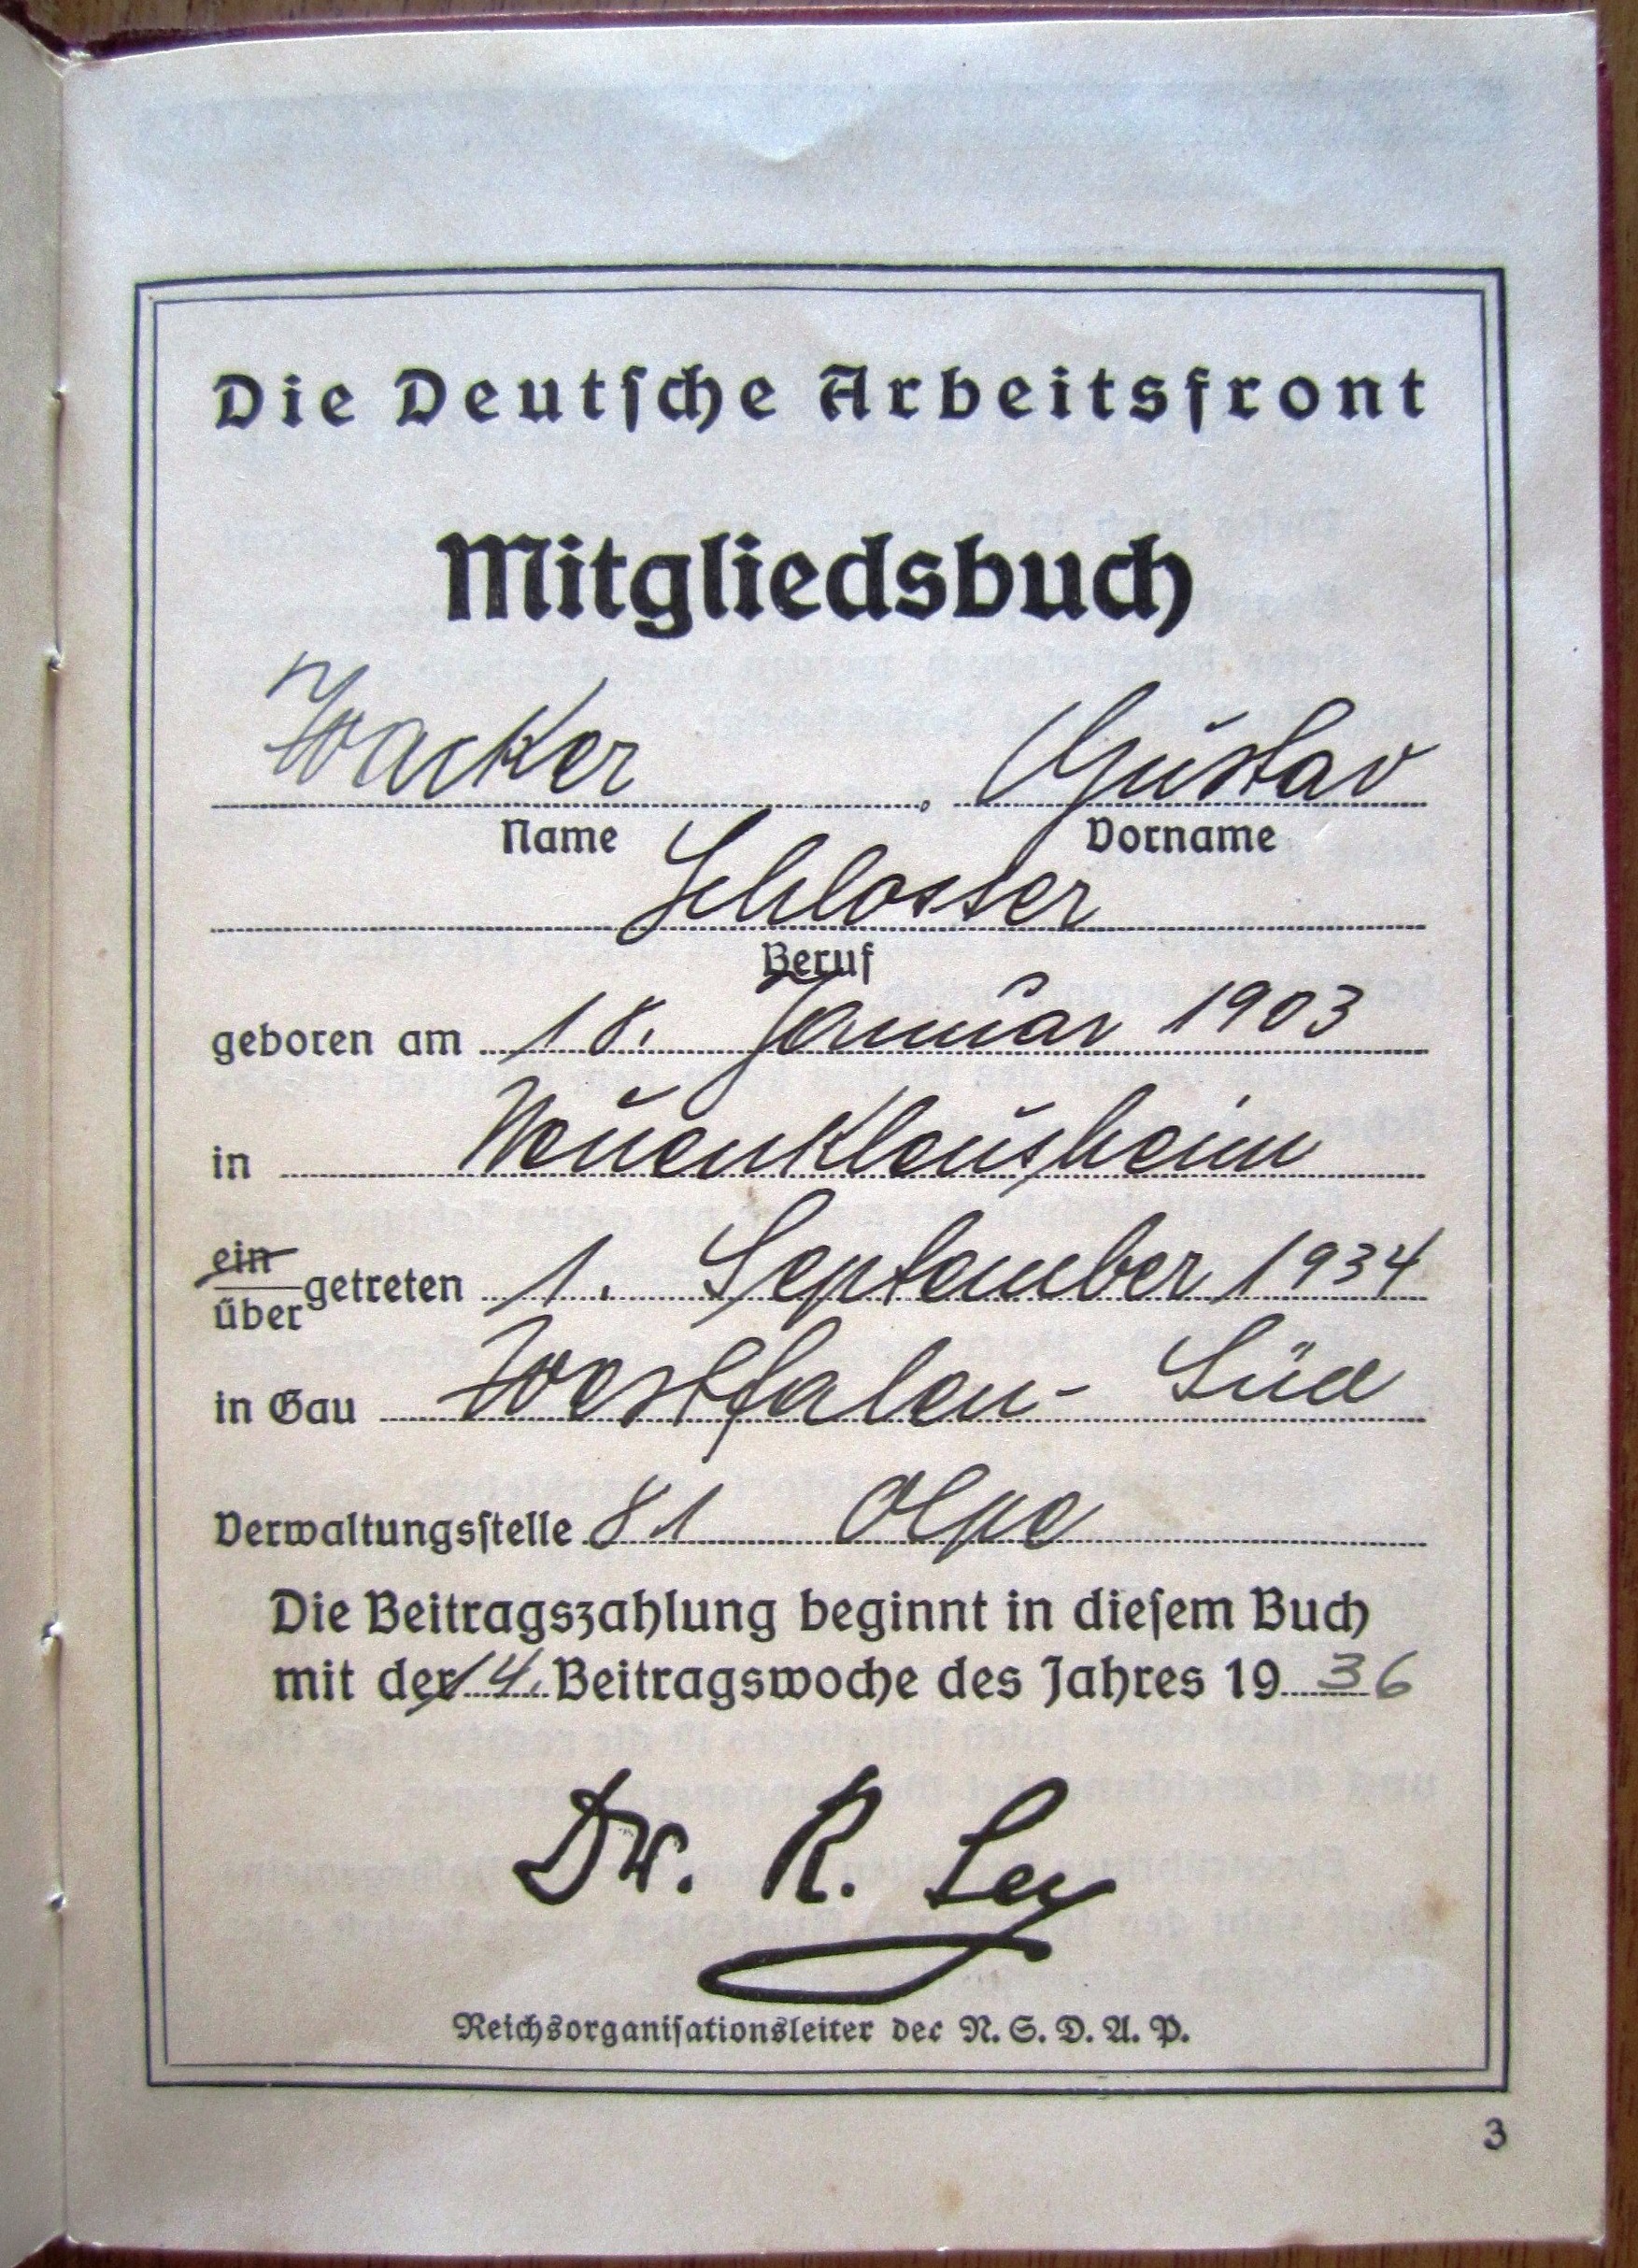 Die Deutſche Arbeitsfront
Mitgliedsbuch
Wacker, Gustav
Name Vorname
Schlosser
Beruf
geboren am 18. Januar 1903
in Neuenkleusheim
ein
über getreten 1. September 1934
in Gau Westfalen-Süd
Verwaltungsſtelle 81 Olpe
Die Beitragszahlung beginnt in dieſem Buch
mit der 14. Beitragswoche des Jahres 1936
Dr. R. Ley
Reichsorganiſationsleiter der N. S. D. A. P.
3